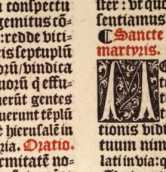 n conspectu
gemitus cō-
: redde vici-
is septuplū
orū / vindica
uorū q̄ effu-
erūt gentes
uerunt tēplū
t hierusalē in
ria. Oratio.
irmitatē no-
ster : vt qu
sentiamus
¶ Sancte
martyris.
tionis vid
tuum nim
lati in via: q